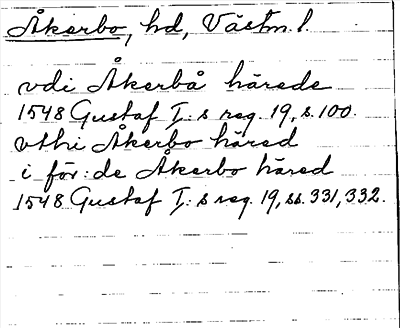 Åkerbo, hd, Västm. l.
vdi Åkerbå härede
1548 Gustaf I:s reg. 19, s. 100.
vthi Åkerbo häred
i för:de Åkerbo häred
1548 Gustaf I:s reg. 19, ss. 331, 332.